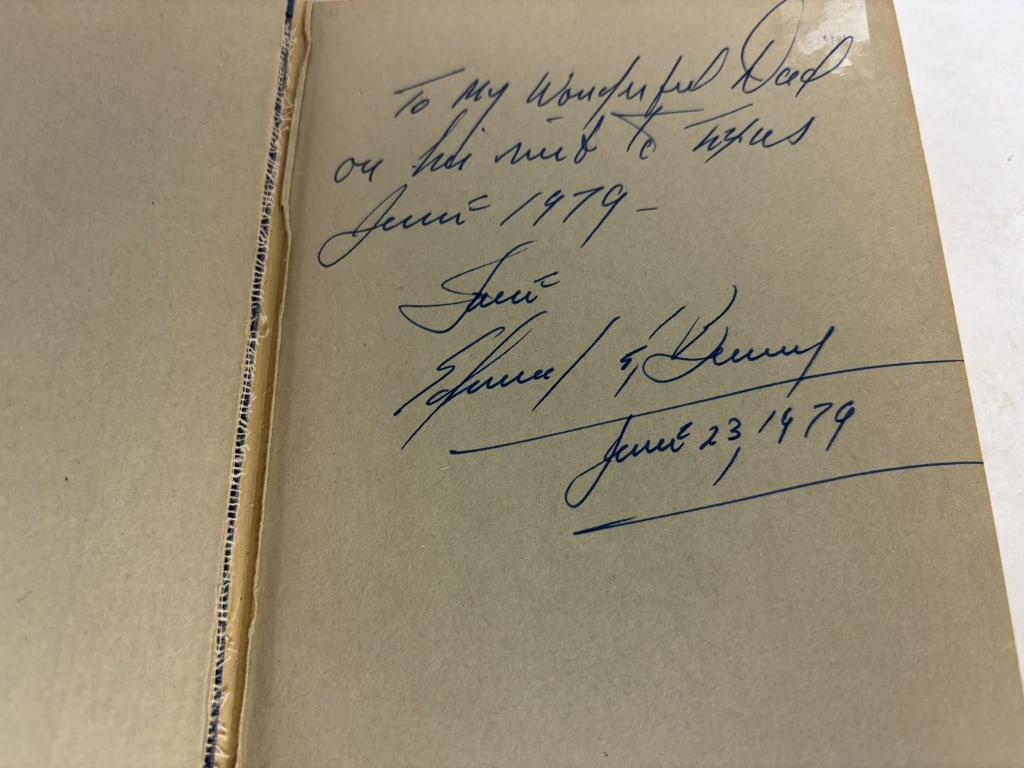 To My Wonderful Dad
on his visit To Texas
June 1979 -
Love
Edward & Benny
June 23, 1979